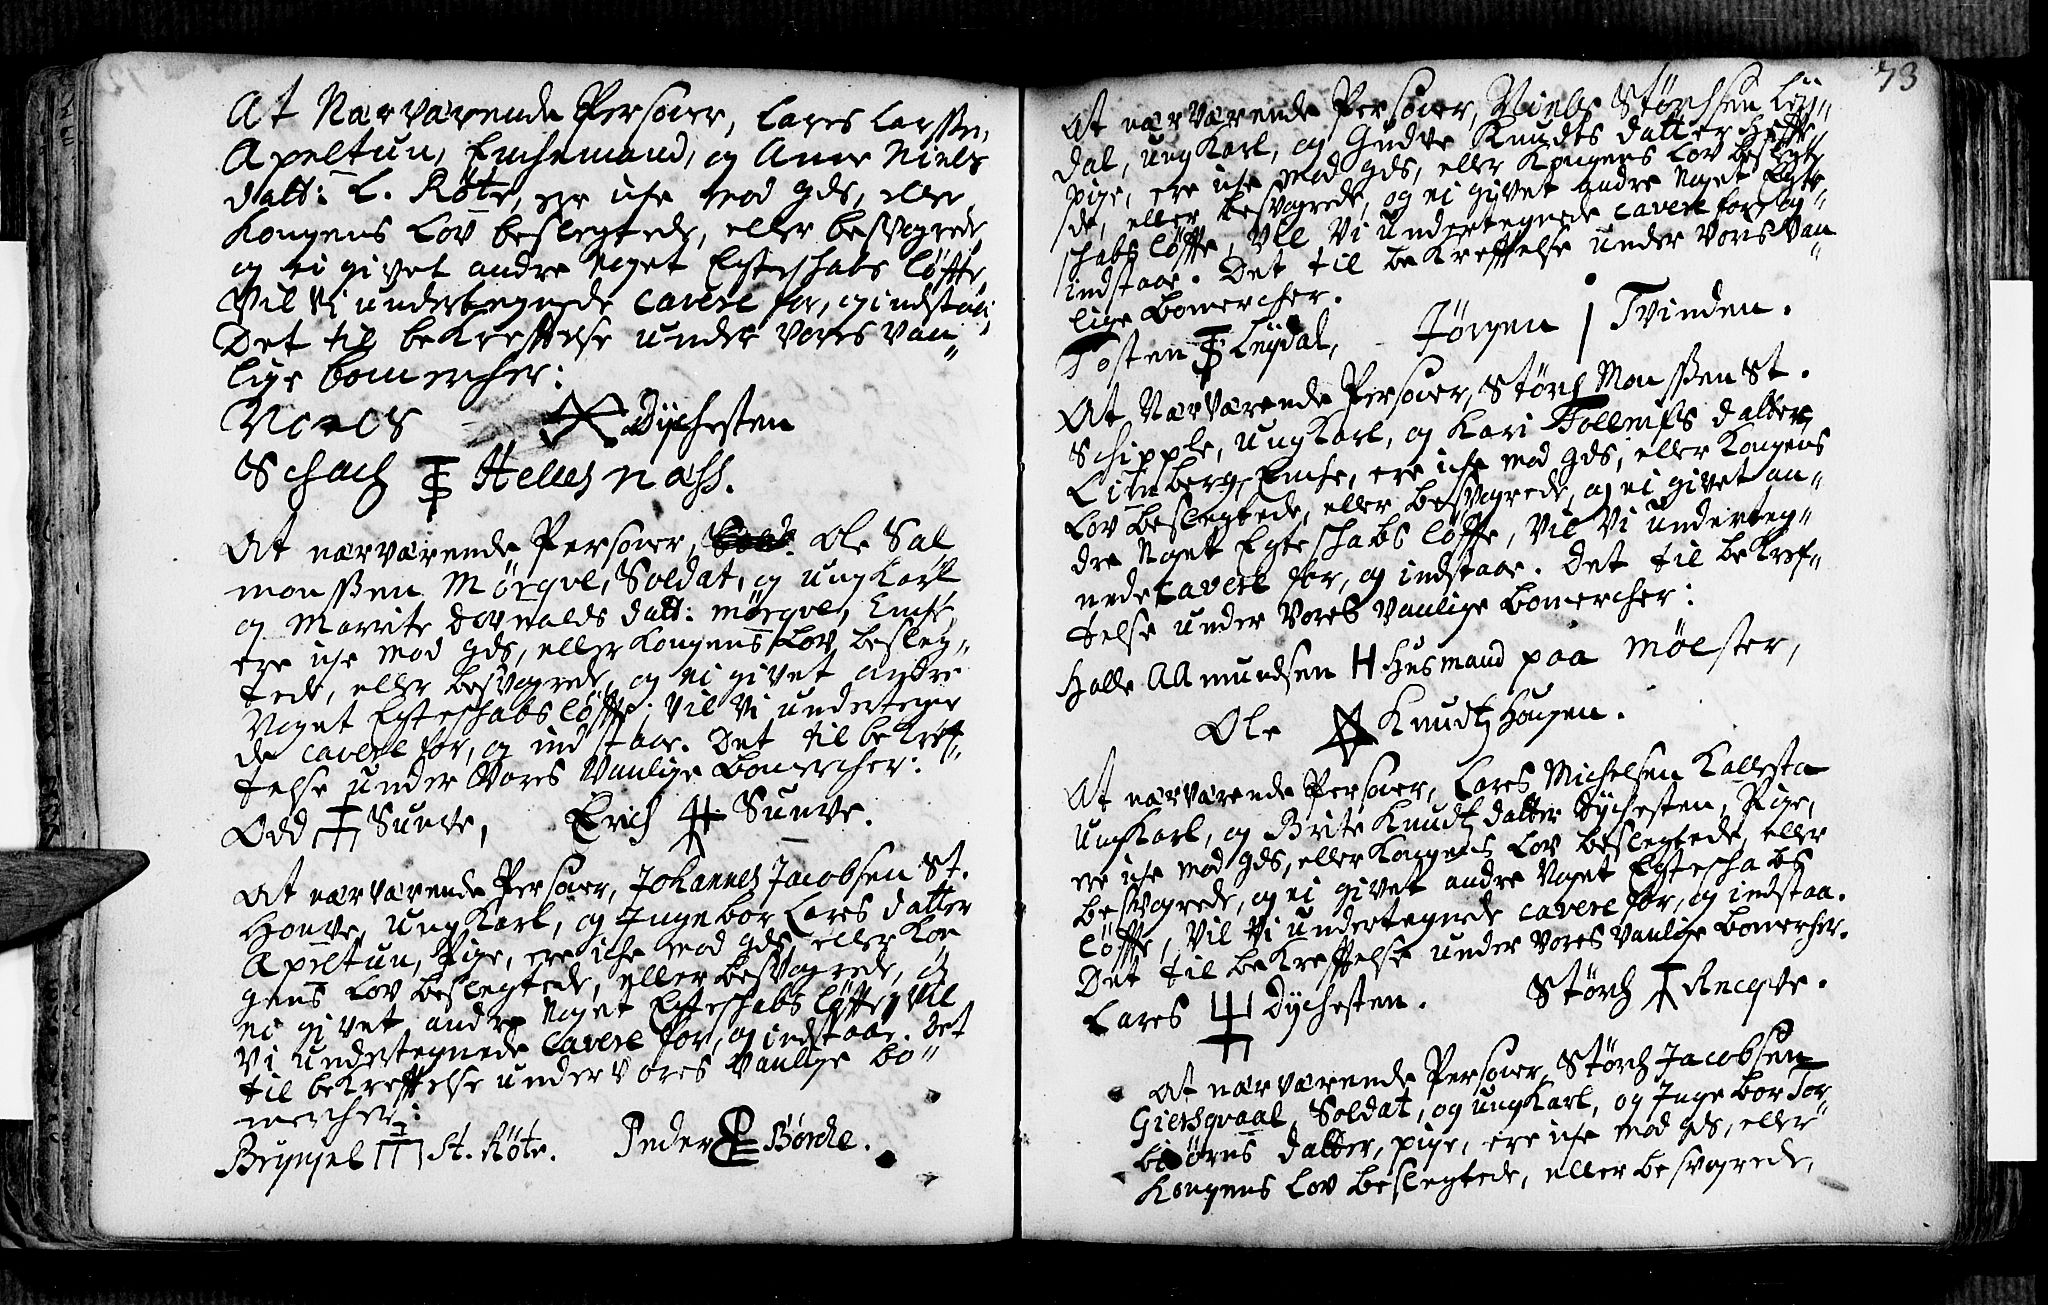 At Nærværende Personer, Lares Larssen
Apeltun, Enchemand, og Anne Niels
datt: L. Röte, ere iche mod Gds, eller
Kongens Lov beslegtede, eller besvogrede
og ei givet andre Noget Egteschabs löffte,
Vil Vi undertegnede cavere for, og indstaa;
Det til bekreffttelse under Vores Van„
lige bomercher:
Dÿchesten
Schach Hellesnass.
At nærværende Personer, Ole Sal
monssen Mörqve, Soldat, og ungKarl,
og Marrite datt: Mörqve, Enche,
ere iche mod Gds, eller Kongens Lov, besleg„
tede, eller besvogrede, og ei givet andre
Noget Egteschabs löffte, Vil Vi undertegne
de cavere for, og indstaae. Det til bekreff„
telse under Vores Vanlige Bomercher:
Odd Sunve, Erich Sunve.
At nærværende Personer, Johannes Jacobsen St.
Honve, ungKarl, og Ingebor Lares datter
Apeltun, Pige, ere iche mod Gds, eller Kon
gens Lov beslegtede, eller besvogrede, og
ei givet andre Noget Egteschabs löffte, Vil
Vi undertegnede cavere for, og indstaae. Det
til bekreffttelse under Vores Vanlige bo„
mercher:
Brynjel St. Röte. Peder Børche.
73
At nærværende Personer, Niels Störchsen Lÿ„
dal, ungKarl, og Gudve Knudts datter
pige, ere iche mod Gds, eller Kongens Lov beslegte
de, eller besvogrede, og ei givet andre Noget Egte
schabs löffte, Vil Vi undertegnede cavere for, og
indstaae. Det til bekreffttelse under Vores Van„
lige Bomercher.
Tosten Lÿdal, Jörgen Tvinden.
At Nærværende Personer, Störch Monssen St.
Schipple, ungKarl, og Kari Tolleufs datter
Limberg, Enche, ere iche mod Gds, eller Kongens
Lov beslegtede, eller besvogrede, og ei givet an„
dre Noget Egteschabs löffte, Vil Vi underteg„
nede cavere for, og indstaae. Det til bekref„
telse under Vores Vanlige Bomercher:
Halle Aamundsen Husmand paa Mölster,
Ole Knudtz Hougen.
At nærværende Personer, Lares Michelsen Kallesta
ungKarl, og Brite Knudtz datter Dÿchesten, Pige,
ere iche mod Gds, eller Kongens Lov beslegtede, eller
besvogrede, og ei givet andre Noget Egteschabs
löffte, Vil Vi undertegnede cavere for, og indstaa.
Det til bekreffttelse under Vores Vanlige Bomercher.
Lares Dÿchesten. Störch Recqve.
At nærværende Personer Störch Jacobsen
Giersqvaal, Soldat, og ungKarl, og Ingebor Tor
biörns datter, pige, ere iche mod Gds, eller
Kongens Lov beslegtede, eller besvogrede,